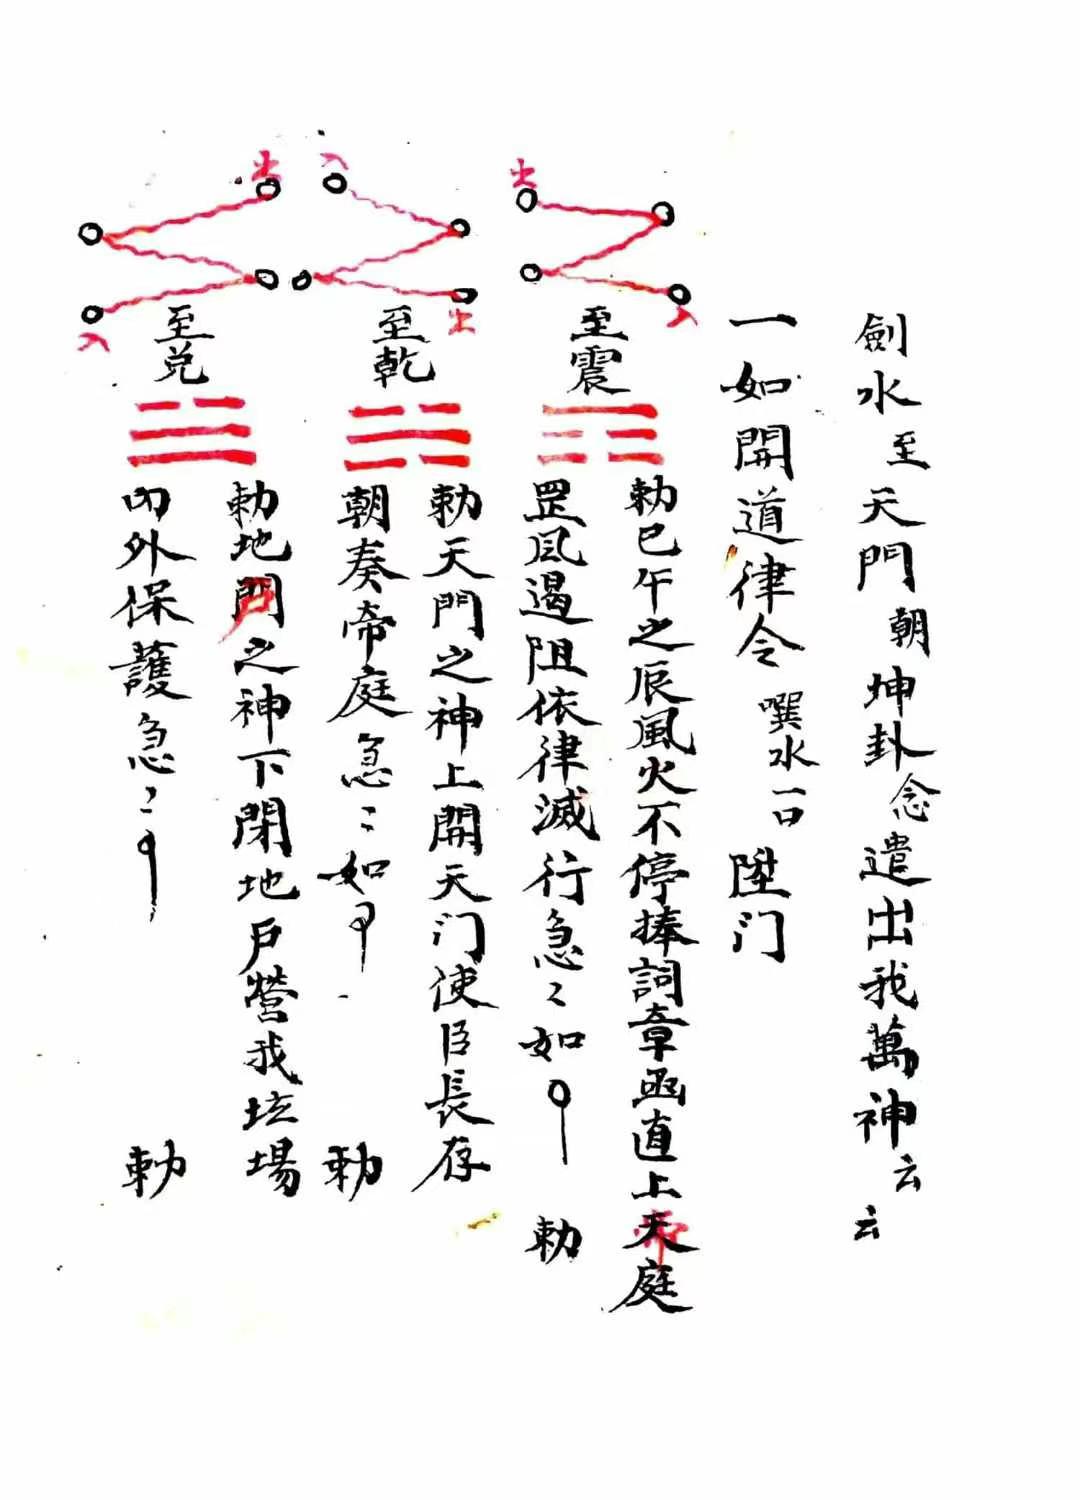 劍水至天門朝坤卦念遣出我萬神云云
一如開道律令噀水一口陞门
出
入
至震
勅巳午之辰風火不停捧詞章函直上天庭
罡风遏阻依律滅行急〻如
勅
入
出
至乾
勅天門之神上開天门使臣長存
朝奏帝庭急〻如
勅
出
入
至兌
勅地户之神下閉地戶營我坛場
内外保護急〻
勅